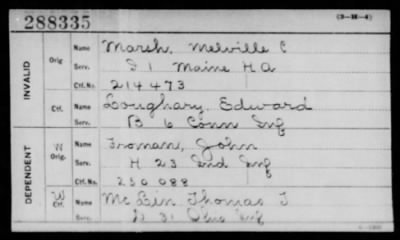 288335
(3-H-4)
INVALID
Orig
Name Marsh, Melville C
Serv. D 1 Maine H A
Ctf. No. 214473
Ctf.
Name Loughary, Edward
Serv. B 6 Conn Inf
DEPENDENT
W Orig.
Name Froman, John
Serv. H 23 Ind Inf
Ctf. No. 250 088
W Ctf.
Name Mc Lin Thomas
Serv. 31 Ohio Inf